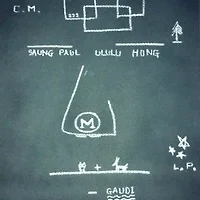 C.M.
SAUNG PAUL ULULU HONG
M
+
L.P.
— GAUDI